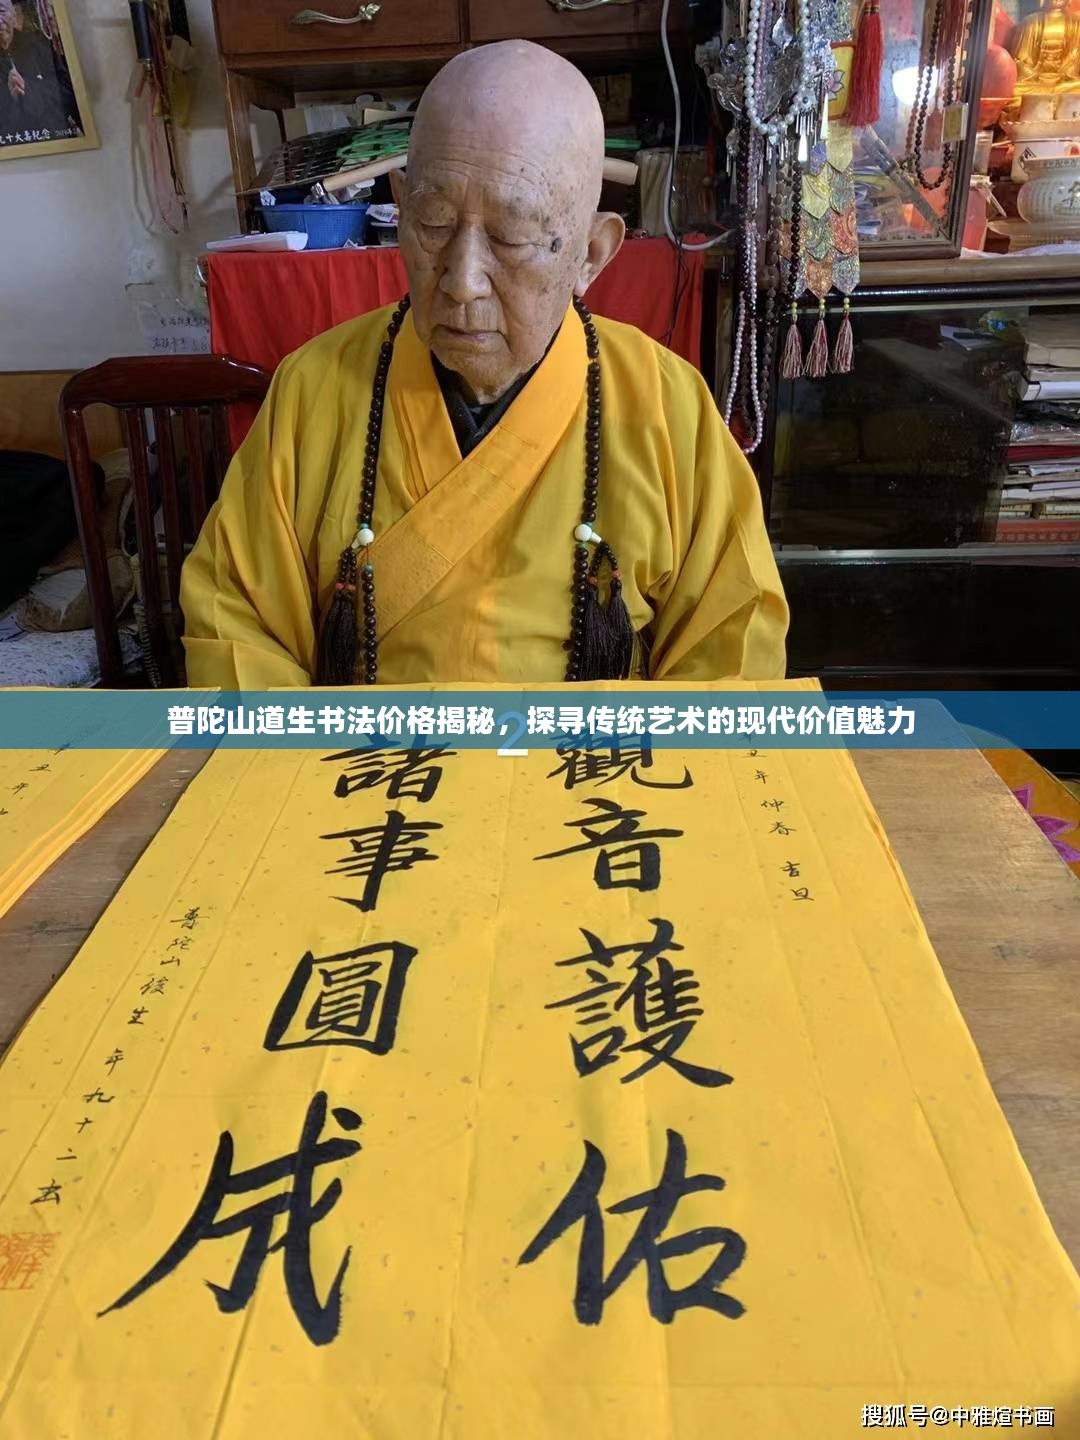 九十大寿纪念
普陀山道生书法价格揭秘，探寻传统艺术的现代价值魅力
2
丑年仲春吉旦
觀音護佑
諸事圓成
普陀山
生年九十二
丑年
搜狐号@中雅煊书画